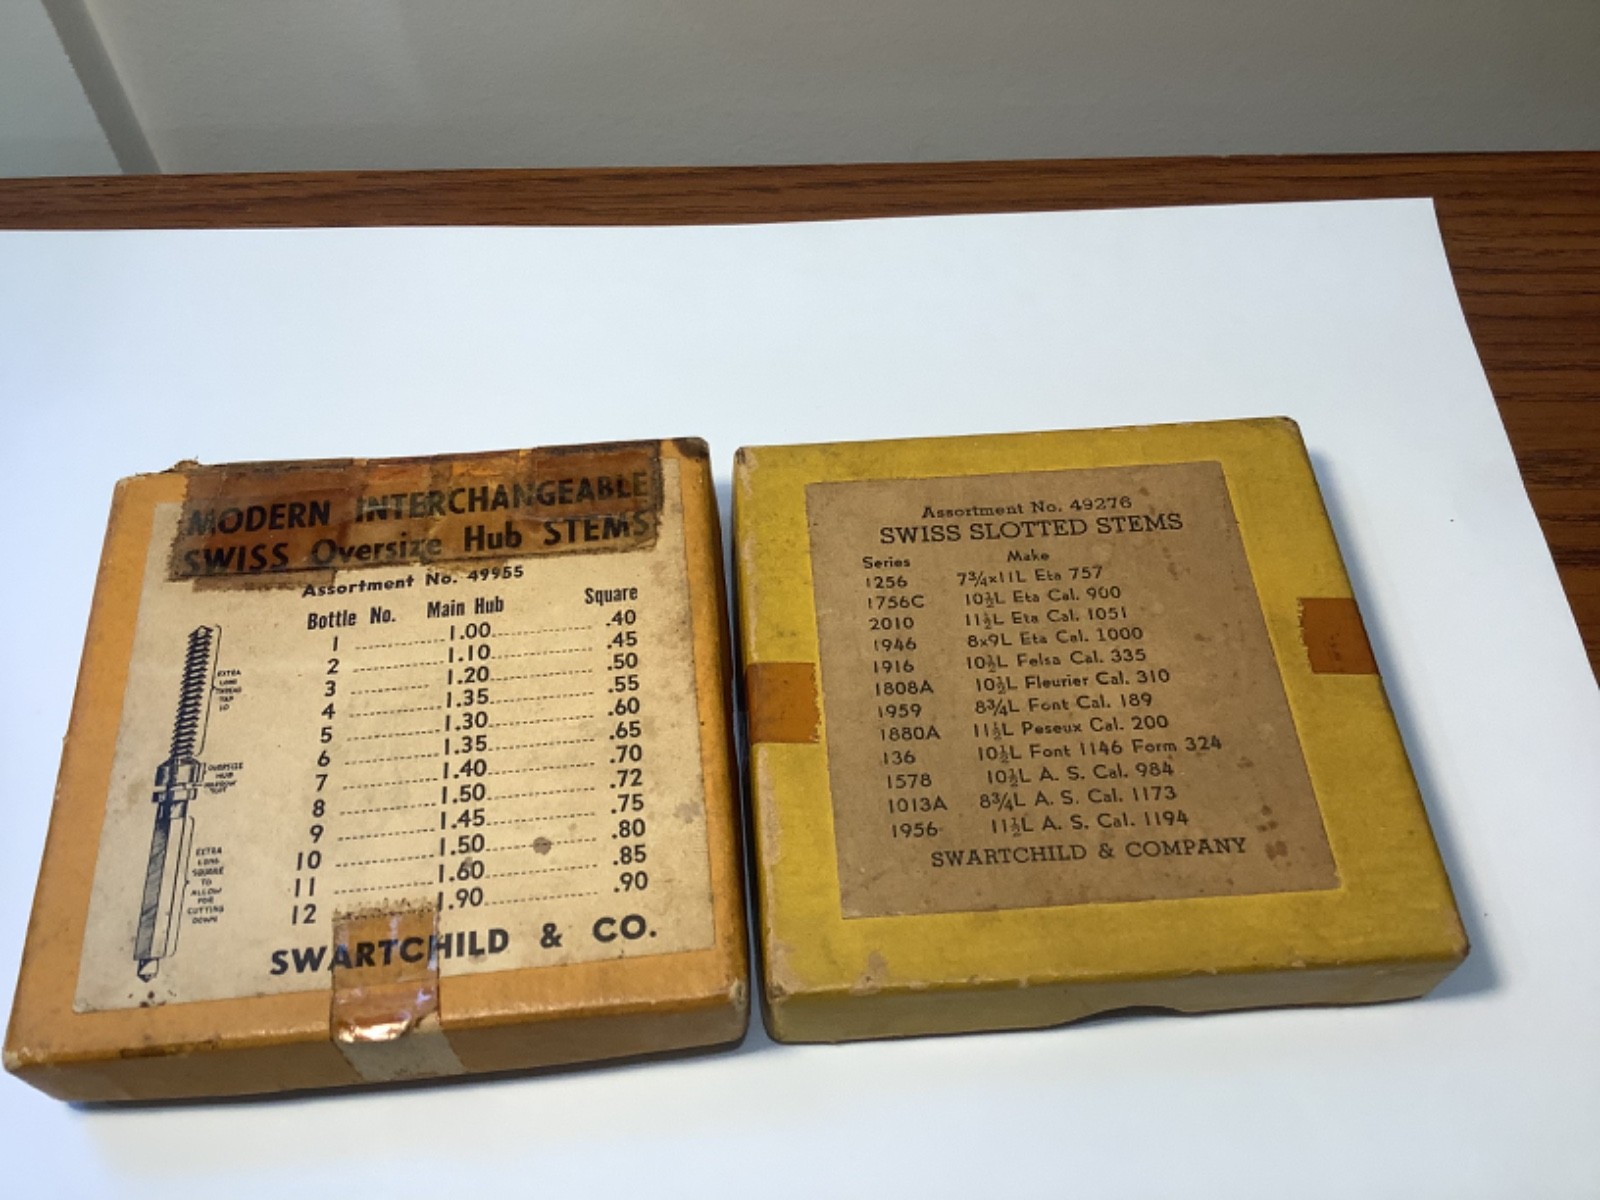 MODERN INTERCHANGEABLE
SWISS Oversize Hub STEMS
Assortment No. 49955
Bottle No. Main Hub Square
1 1.00 .40
2 1.10 .45
3 1.20 .50
4 1.35 .55
5 1.30 .60
6 1.35 .65
7 1.40 .70
8 1.50 .72
9 1.45 .75
10 1.50 .80
11 1.60 .85
12 1.90 .90
SWARTCHILD & CO.
EXTRA
LONG
THREAD
TAP
10
OVERSIZE
HUB
EXTRA
LONG
SQUARE
TO
ALLOW
FOR
CUTTING
DOWN
Assortment No. 49276
SWISS SLOTTED STEMS
Series Make
1256 7¾x11L Eta 757
1756C 10½L Eta Cal. 900
2010 11½L Eta Cal. 1051
1946 8x9L Eta Cal. 1000
1916 10½L Felsa Cal. 335
1808A 10½L Fleurier Cal. 310
1959 8¾L Font Cal. 189
1880A 11½L Peseux Cal. 200
136 10½L Font 1146 Form 324
1578 10½L A. S. Cal. 984
1013A 8¾L A. S. Cal. 1173
1956 11½L A. S. Cal. 1194
SWARTCHILD & COMPANY